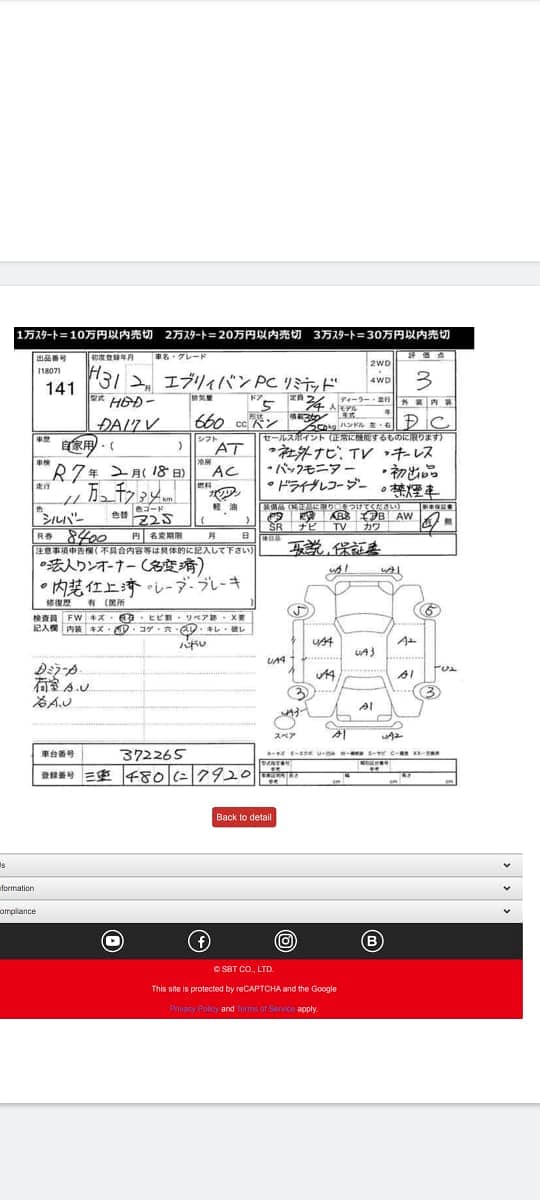 1万スタート=10万円以内売切 2万スタート=20万円以内売切 3万スタート=30万円以内売切
出品番号 初度登録年月 車名・グレード 2WD ・ 4WD 評価点
[1807]
141 H31 2月 エブリィバン PC リミテッド 3
型式 HBD- 排気量 ドア 5 定員 2/4人 ディーラー・並行 外装 内装
DA17V 660 cc 形状 バン 積載 350/250kg ハンドル 左・右 D C
車歴 自家用・( ) シフト AT セールスポイント (正常に機能するものに限ります)
・社外ナビ、TV ・キーレス
車検 R7年 2月(18日) 冷房 AC ・バックモニター ・初出品
走行 11万2千734km 燃料 ガソリン ・ドライブレコーダー ・禁煙車
軽・油
装備品(純正品に限り○をつけてください) 新車保証書
色 シルバー 色替 色コード Z2S ( ) AW
SR ナビ TV カワ
R券 8400円 名変期限 月 日 後日品 取説、保証書
注意事項申告欄(不具合内容等は具体的に記入して下さい)
・法人ワンオーナー(名変済)
・内装仕上済 ・レーダーブレーキ
修復歴 有 (箇所 )
検査員 FW キズ・ ・ヒビ割・リペア跡・X要
記入欄 内装 キズ・ ・コゲ・穴・スレ・キレ・破レ
ハンドル
DミラーA
荷室A.U
各A.U
UA1 UA1
5 6
UA4 A2
UA3
UA4 UA4 A1 U2
3 A1 3
UA3
スペア A1 UA2
車台番号 372265
登録番号 三重 480 に 7920
Back to detail
Us
formation
ompliance
B
© SBT CO., LTD.
This site is protected by reCAPTCHA and the Google
Privacy Policy and Terms of Service apply.